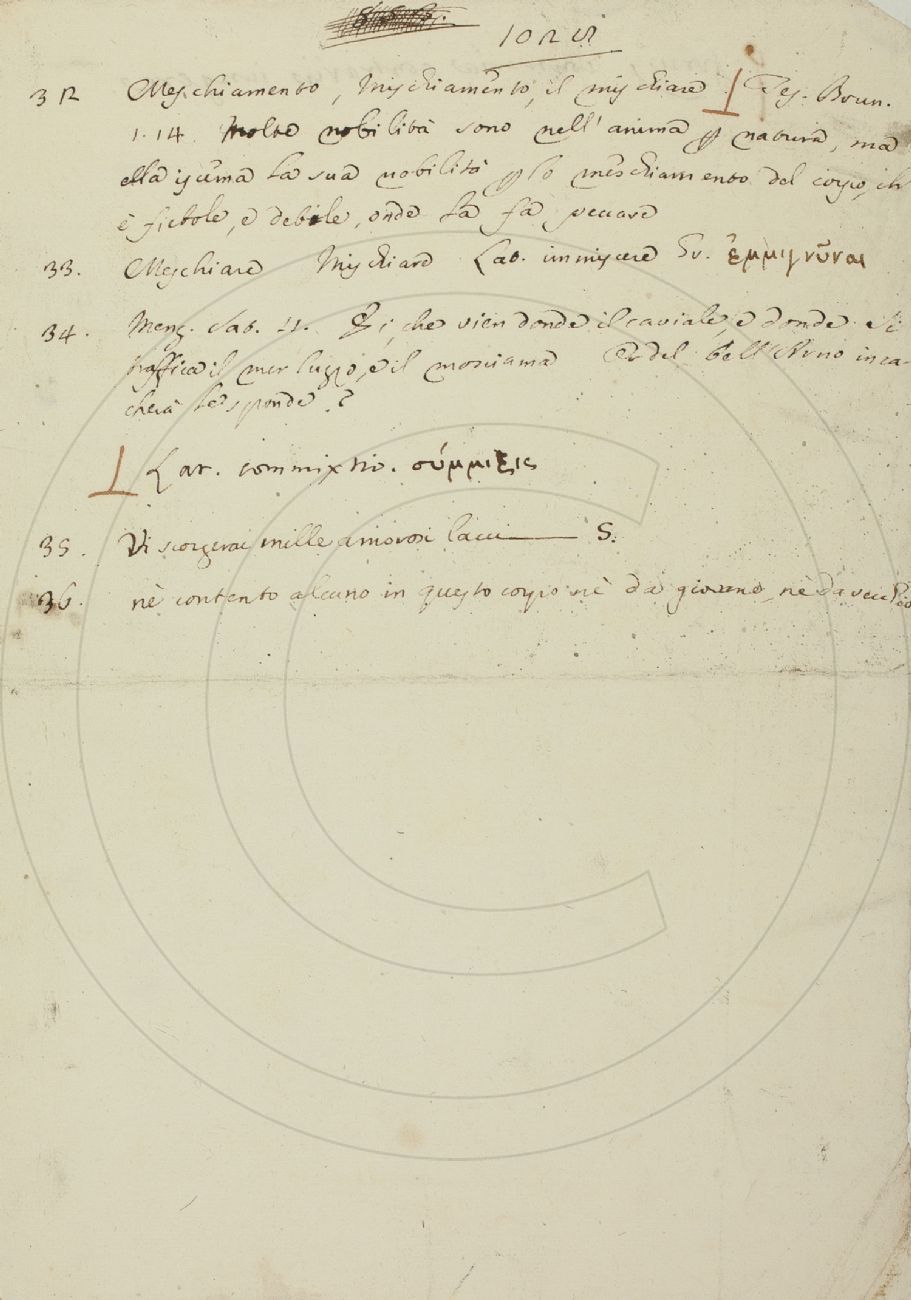 32 Meschiamento, Mischiamento, il mischiare ⊥ Tes. Brun.
1. 14. Molte nobilità sono nell'anima ꝑ natura, ma
ella isuma la sua nobilità ꝑ lo meschiamento del corpo, ch'
è fievole, e debile, onde la fa peccare
33. Meschiare Mischiare Lat. immiscere Gr. ἐμμιγνῦναι
34. Menz. Sat. 11. che vien donde il caviale, e donde Si
traffica il merluzzo, e il mosciama del bell'Arno inca-
cherà le sponde?
⊥ Lat. commixtio. σύμμιξις
35. Vi scorgerai mille amorosi lacci S.
36. nè contento alcuno in questo corpo nè da giovane, nè da vecchio